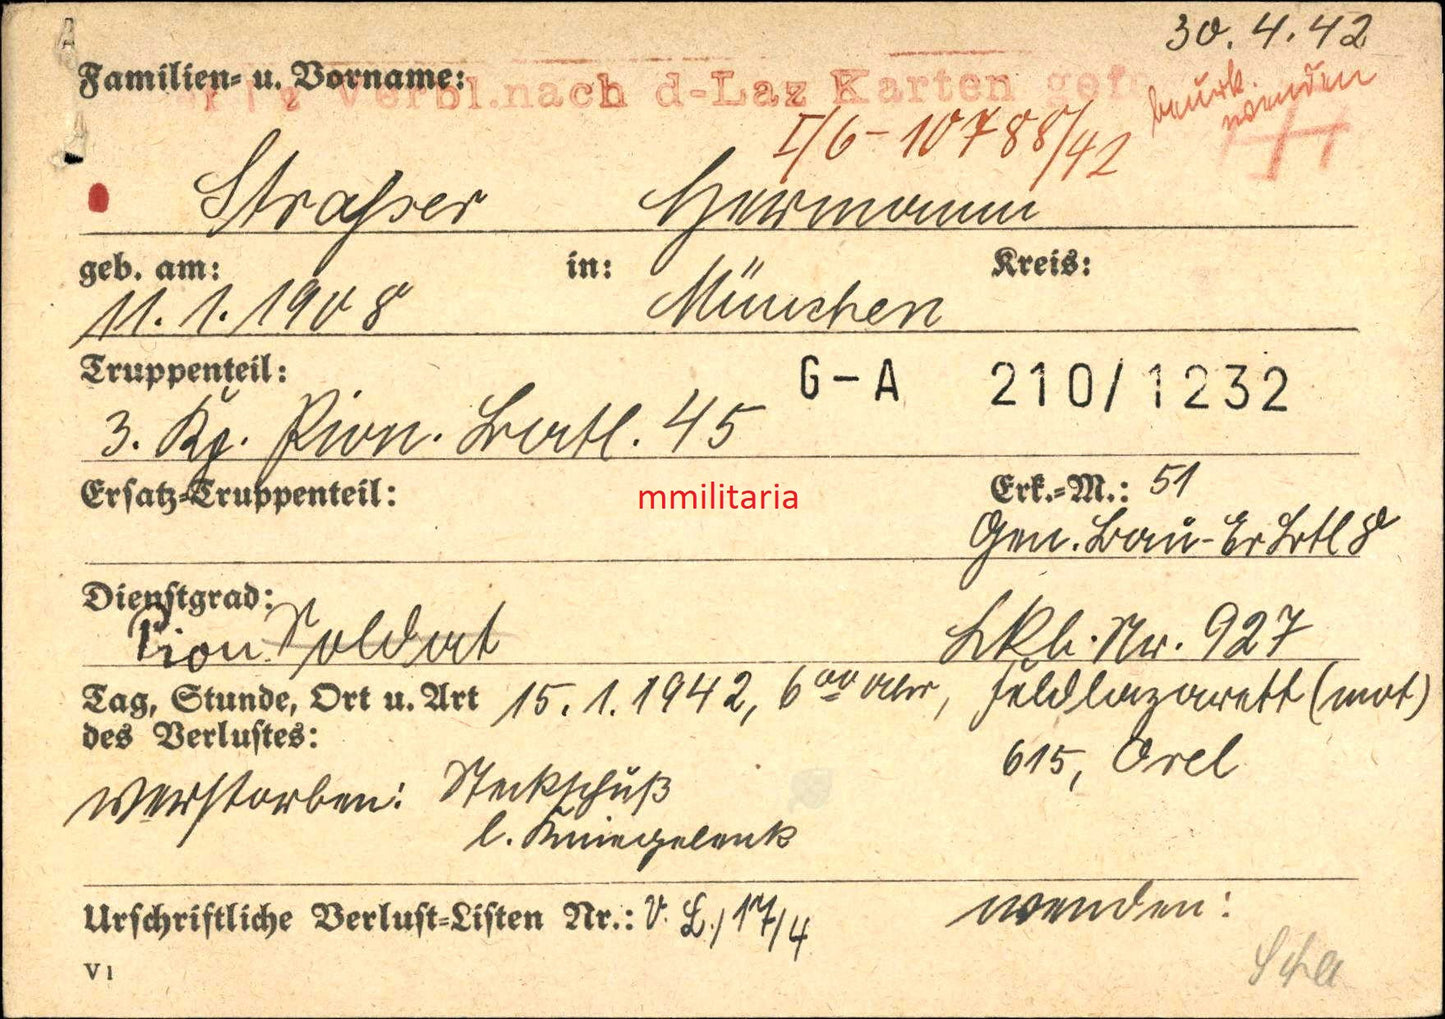 30.4.42
Familien- u. Vorname:
Verbl. nach d-Laz Karten
beurk.
wenden
I/6-10788/42
Strasser Hermann
geb. am: in: Kreis:
11.1.1908 München
Truppenteil: G-A 210/1232
3. Kp. Pion. Batl. 45
Ersatz-Truppenteil: mmilitaria Erk.-M.: 51
Gen. Bau-Er Btl 8
Dienstgrad:
Pion Soldat Lkb. Nr. 927
Tag, Stunde, Ort u. Art 15.1.1942, 6⁰⁰ Uhr, Feldlazarett (mot)
des Verlustes: 615, Orel
verstorben: Steckschuß
l. Kniegelenk
Urschriftliche Verlust-Listen Nr.: V. L./17/4 wenden:
V1